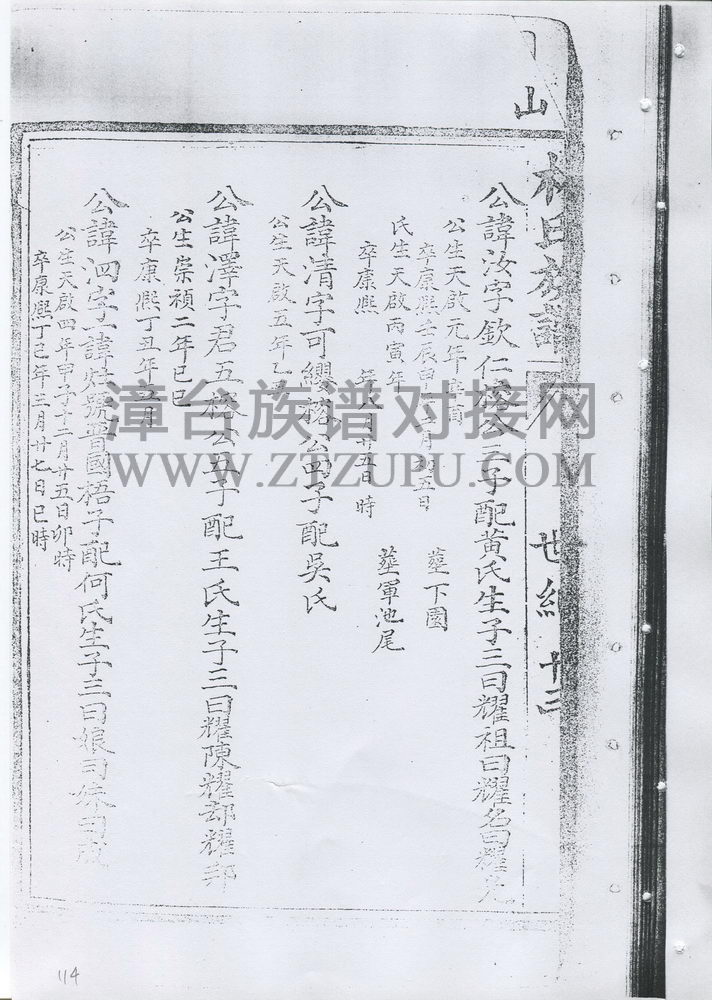 山
林氏族譜
世紀 十三
公諱汝字欽仁
公三子配黃氏生子三曰耀祖曰耀名曰耀
公生天啟元年
卒康熙壬辰
月初五日 葬下園
氏生天啟丙寅年
卒康熙
年
月廿五日時 葬軍池尾
公諱清字可纓
公四子配吳氏
公生天啟五年乙丑
公諱澤字君五
公五子配王氏生子三曰耀陳耀
耀邦
公生崇禎二年己巳
卒康熙丁丑年五月
公諱泗字
諱
號晋國梧子配何氏生子三曰娘曰妹曰成
公生天啟四年甲子十二月廿五日卯時
卒康熙丁巳年三月廿七日巳時
漳台族谱对接网
WWW.ZTZUPU.COM
114